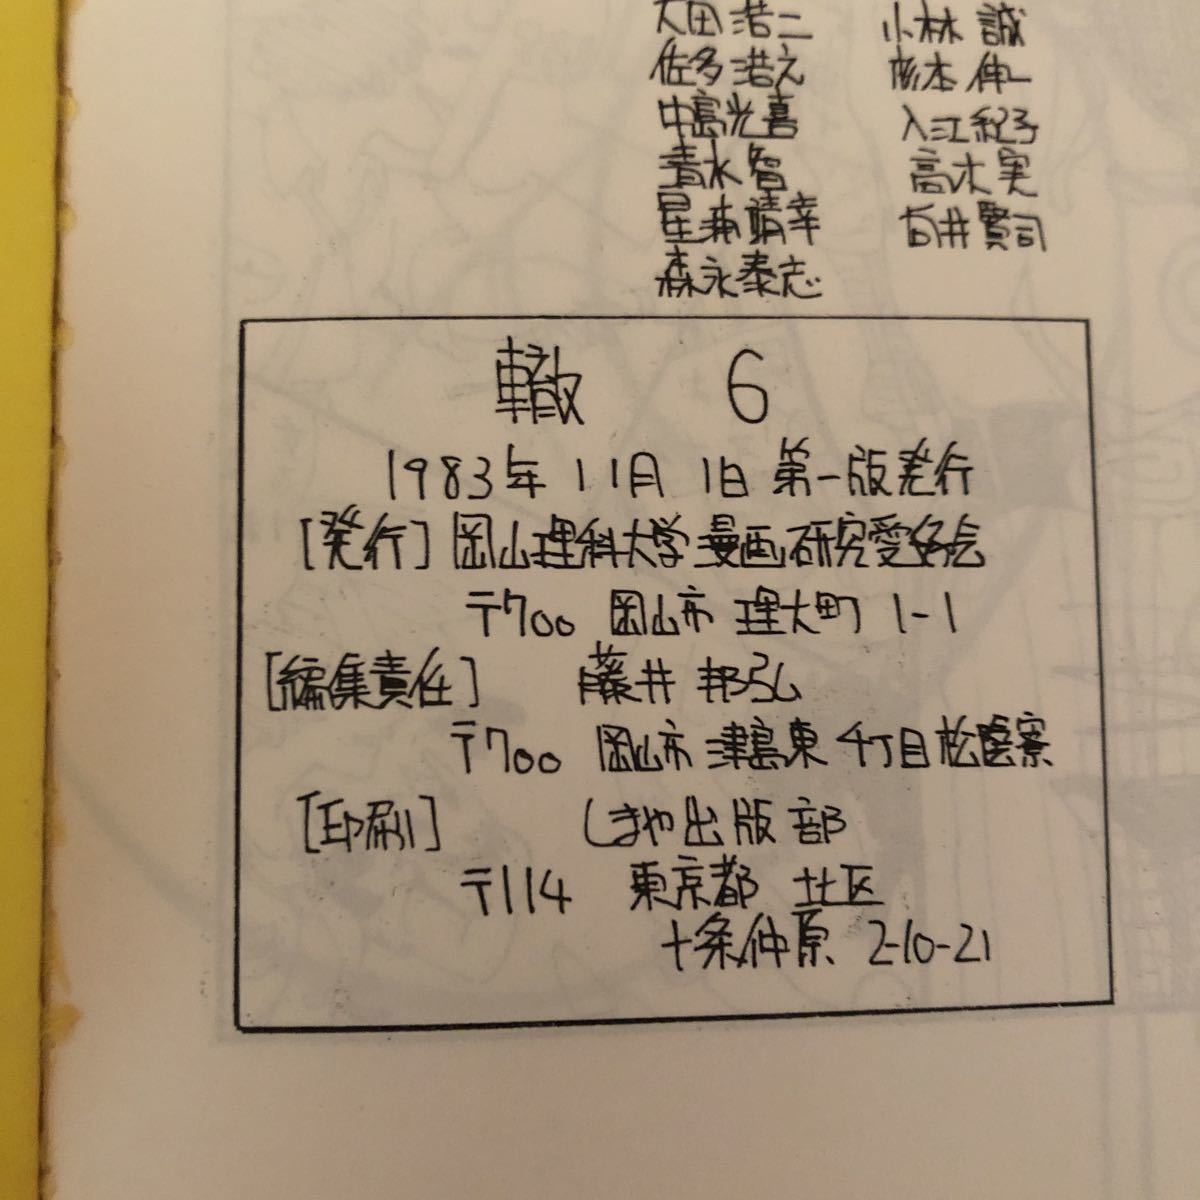 太田浩二 小林 誠
佐多浩之 杉本伸一
中島光喜 入江紀子
清水 智 高木 実
星浦靖幸 向井賢司
森永泰志
轍 6
1983年 11月 1日 第一版発行
[発行] 岡山理科大学 漫画研究愛好会
〒700 岡山市 理大町 1-1
[編集責任] 藤井 邦弘
〒700 岡山市 津島東 4丁目 松蔭寮
[印刷] しまや出版部
〒114 東京都 北区
十条仲原 2-10-21